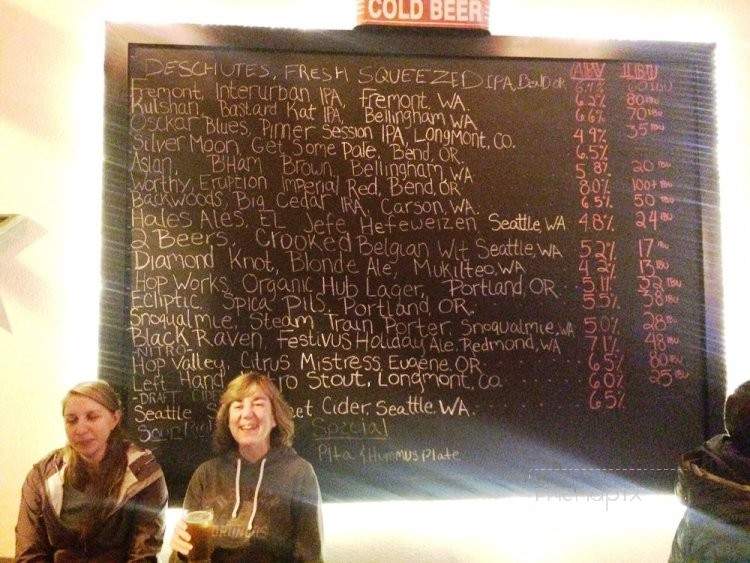 COLD BEER
DESCHUTES, FRESH SQUEEZED IPA, Bend OR ABV IBU
Fremont Interurban IPA, Fremont, WA. 6.2% 80 IBU
Kulshan, Bastard Kat IPA, Bellingham WA 6.6% 70 IBU
Osckar Blues, Pinner Session IPA, Longmont, CO. 4.9% 35 IBU
Silver Moon, Get Some Pale, Bend, OR. 6.5%
Aslan, B'Ham Brown, Bellingham WA 5.8% 20 IBU
Worthy, Eruption Imperial Red, Bend, OR 8.0% 100+ IBU
Backwoods, Big Cedar IRA, Carson, WA. 6.5% 50 IBU
Hales Ales, EL Jefe Hefeweizen Seattle WA 4.8% 24 IBU
2 Beers, Crooked Belgian Wit Seattle, WA 5.2% 17 IBU
Diamond Knot, Blonde Ale, Mukilteo, WA 4.2% 13 IBU
Hop Works, Organic Hub Lager, Portland, OR 5.1% 22 IBU
Ecliptic, Spica Pils, Portland, OR. 5.5% 38 IBU
Snoqualmie, Steam Train Porter, Snoqualmie, WA 5.0% 28 IBU
Black Raven, Festivus Holiday Ale, Redmond, WA 7.1% 48 IBU
-NITRO-
Hop Valley, Citrus Mistress, Eugene, OR 6.5% 80 IBU
Left Hand, Stout, Longmont, Co. 6.0% 25 IBU
-DRAFT
Seattle Cider, Seattle, WA. 6.5%
Soup Special
Pita & Hummus Plate